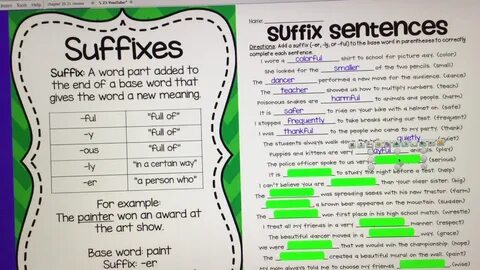 Suffixes
Suffix: A word part added to
the end of a base word that
gives the word a new meaning.
-ful "full of"
-y "full of"
-ous "full of"
-ly "in a certain way"
-er "a person who"
For example:
The painter won an award at
the art show.
Base word: paint
Suffix: -er
Name:
Suffix Sentences
Directions: Add a suffix (-er, -ly, or -ful) to the base word in parentheses to correctly
complete each sentence.
I wore a colorful shirt to school for picture day. (color)
She looked for the smaller of the two pencils. (small)
The dancer performed a new move for the audience. (dance)
The teacher showed us how to multiply numbers. (teach)
Poisonous snakes are harmful to animals and people. (harm)
It is safer to ride on your bike with a helmet on. (safe)
I stopped frequently to take breaks during our test. (frequent)
I was thankful to the people who came to my party. (thank)
The students always walk quietly (quiet)
Puppies and kittens are very playful (play)
The police officer spoke to us very (serious)
It is to study the night before a test. (help)
I can't believe you are than your sister. (big)
The was spreading seeds with his new tractor. (farm)
, a brown bear appeared on the mountain. (sudden)
The won first place in his high school match. (wrestle)
I treat all my friends in a very manner. (respect)
The beautiful dancer moved in a way. (grace)
We were that we would win the championship. (hope)
The created a beautiful mural on the wall. (paint)
My mom always told me to choose my friends (wise)